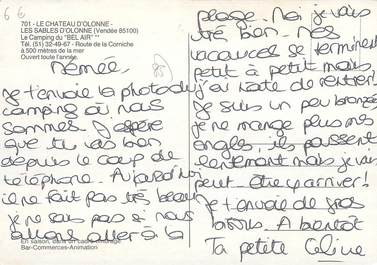 6 6
701 - LE CHATEAU D'OLONNE -
LES SABLES D'OLONNE (Vendée 85100)
Le Camping du "BEL AIR" **
Tél. (51) 32-49-67 - Route de la Corniche
à 500 mètres de la mer
Ouvert toute l'année.
Mémée.
Je t'envoie la photo du
camping où nous
sommes. J'espère
que tu vas bien
depuis le coup de
téléphone. Aujourd'hui
il ne fait pas très beau
je ne sais pas si nous
allons aller à la
En saison, dans un cadre ombragé
Bar-Commerces-Animation
plage. Moi je vais
très bien. Mes
vacances se terminent
petit à petit mais
j'ai hate de rentrer!
Je suis un peu bronzée
je ne mange plus mes
ongles ils poussent
lentement mais je vais
peut être y arriver!
Je t'envoie de gros
bisous. A bientôt
Ta petite Céline